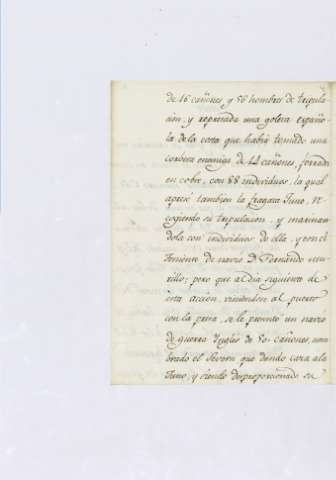 de 16 cañones y 56 hombres de tripula-
cion, y represada una goleta españo-
la de la costa que habia tomado una
corbeta enemiga de 24 cañones, forrada
en cobre, con 88 individuos, la qual
apresó tambien la fragata Juno, re-
cogiendo su tripulacion, y marinan-
dola con individuos de ella, y con el
teniente de navio D. Fernando
rillo; pero que al dia siguiente de
esta accion, viniendose al puerto
con la presa, se le presentó un navio
de guerra Ingles de 50 cañones, nom-
brado el Severn que dando caza a la
Juno, y siendo desproporcionada su